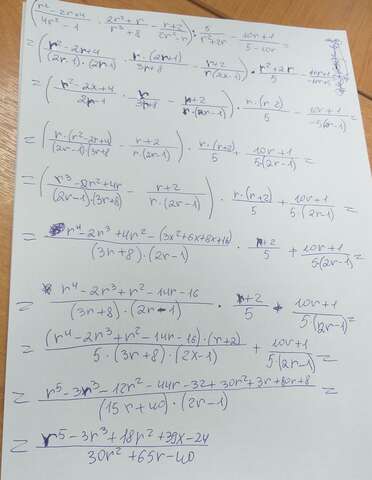 (r²-2r+4 / 4r²-1 · 2r²+r / r³+8 - r+2 / 2r²-r) : 5 / r²+2r - 10r+1 / 5-10r =
= (r²-2r+4 / (2r-1)·(2r-1) · r·(2r+1) / 3r+8 - r+2 / r(2x-1)) · r²+2r / 5 -
= (r²-2x+4 / 2r-1 · r / 3r+8 - r+2 / r·(2r-1)) · r·(r+2) / 5 - 10r+1 / -5(2r-1) =
= (r·(r²-2r+4) / (2r-1)·(3r+8) - r+2 / r·(2r-1)) · r·(r+2) / 5 + 10r+1 / 5·(2r-1) =
= (r³-2r²+4r / (2r-1)·(3r+8) - r+2 / r·(2r-1)) · r·(r+2) / 5 + 10r+1 / 5·(2r-1) =
= r⁴-2r³+4r²-(3x²+6x+8x+16) / (3r+8)·(2r-1) · r+2 / 5 + 10r+1 / 5(2r-1) =
= r⁴-2r³+r²-14r-16 / (3r+8)·(2r-1) · r+2 / 5 + 10r+1 / 5·(2r-1) =
= (r⁴-2r³+r²-14r-16)·(r+2) / 5·(3r+8)·(2x-1) + 10r+1 / 5·(2r-1) =
= r⁵-3r³-12r²-44r-32+30r²+3r+80r+8 / (15r+40)·(2r-1) =
= r⁵-3r³+18r²+39x-24 / 30r²+65r-40